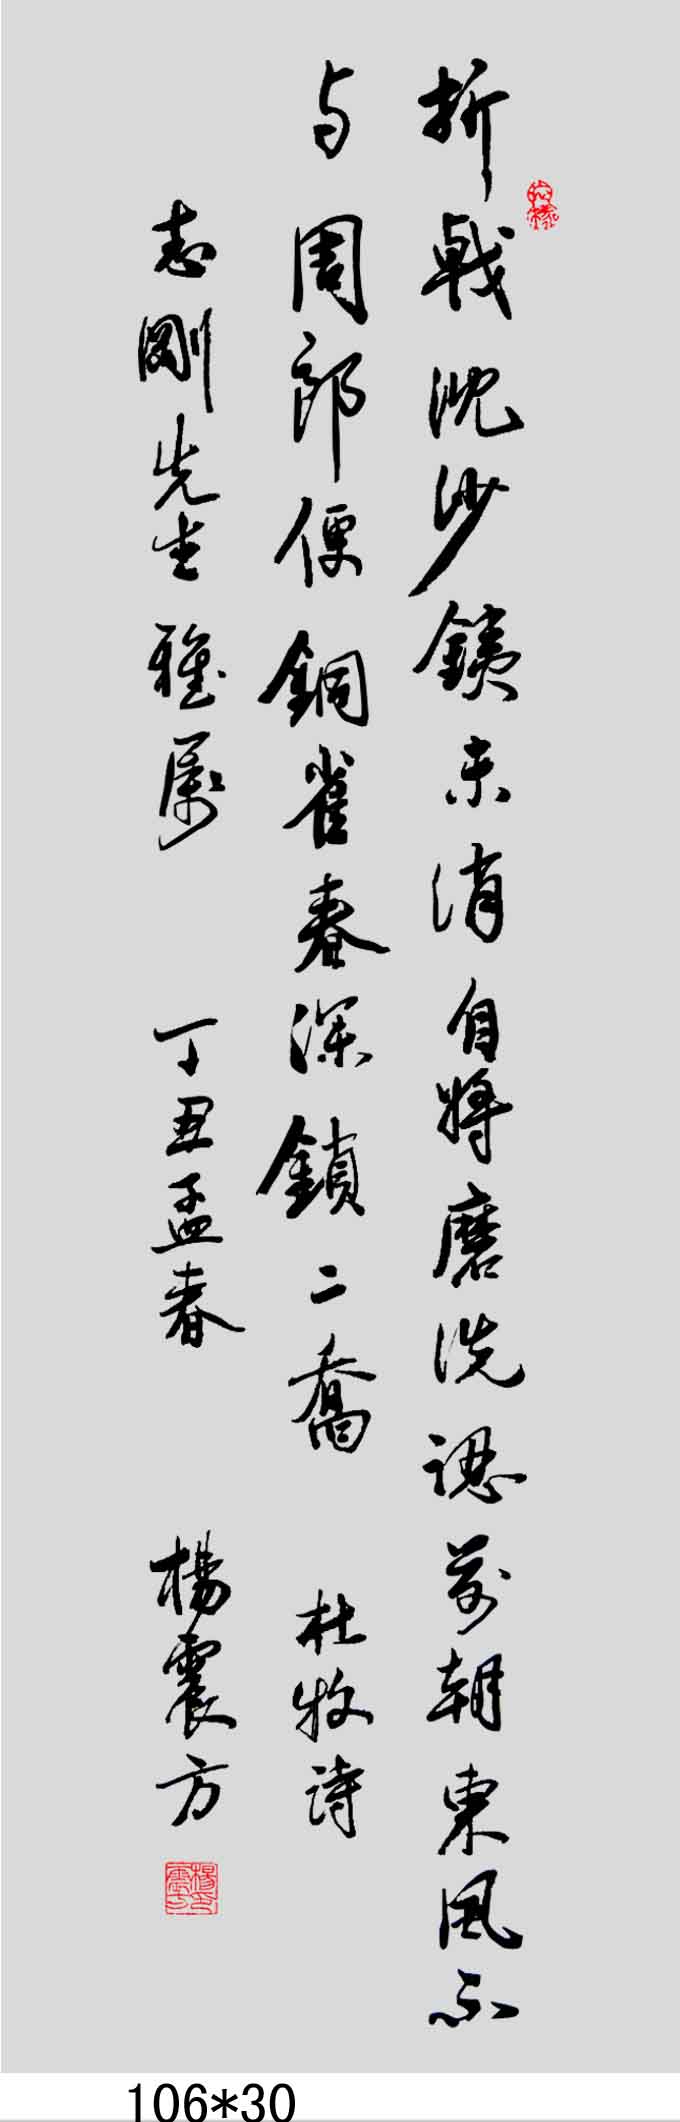 折戟沈沙鐵未消自將磨洗認前朝東風不
与周郎便銅雀春深鎖二喬 杜牧詩
志剛先生雅屬 丁丑孟春 楊震方
106*30